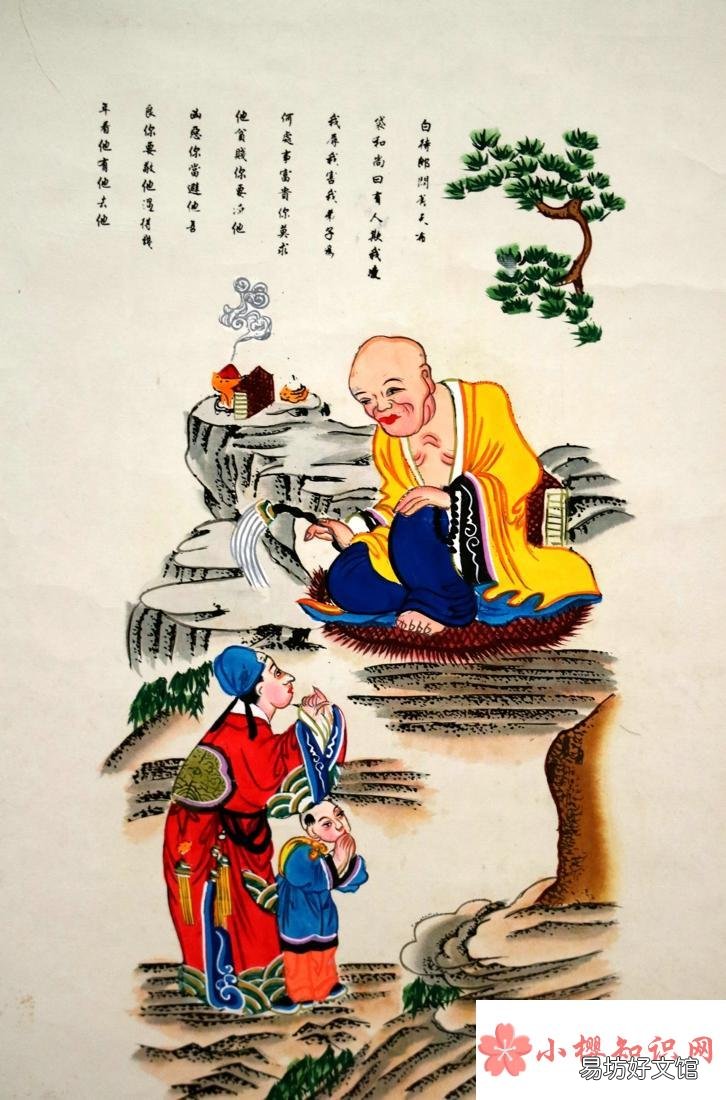 白侍郎問天布
袋和尚曰有人欺我凌
我辱我害我弟子為
何處事富貴你莫求
他貧賤你要他
凶惡你當避他善
良你要敬他得幾
年看他有他去他
小樱知识网
易坊好文馆